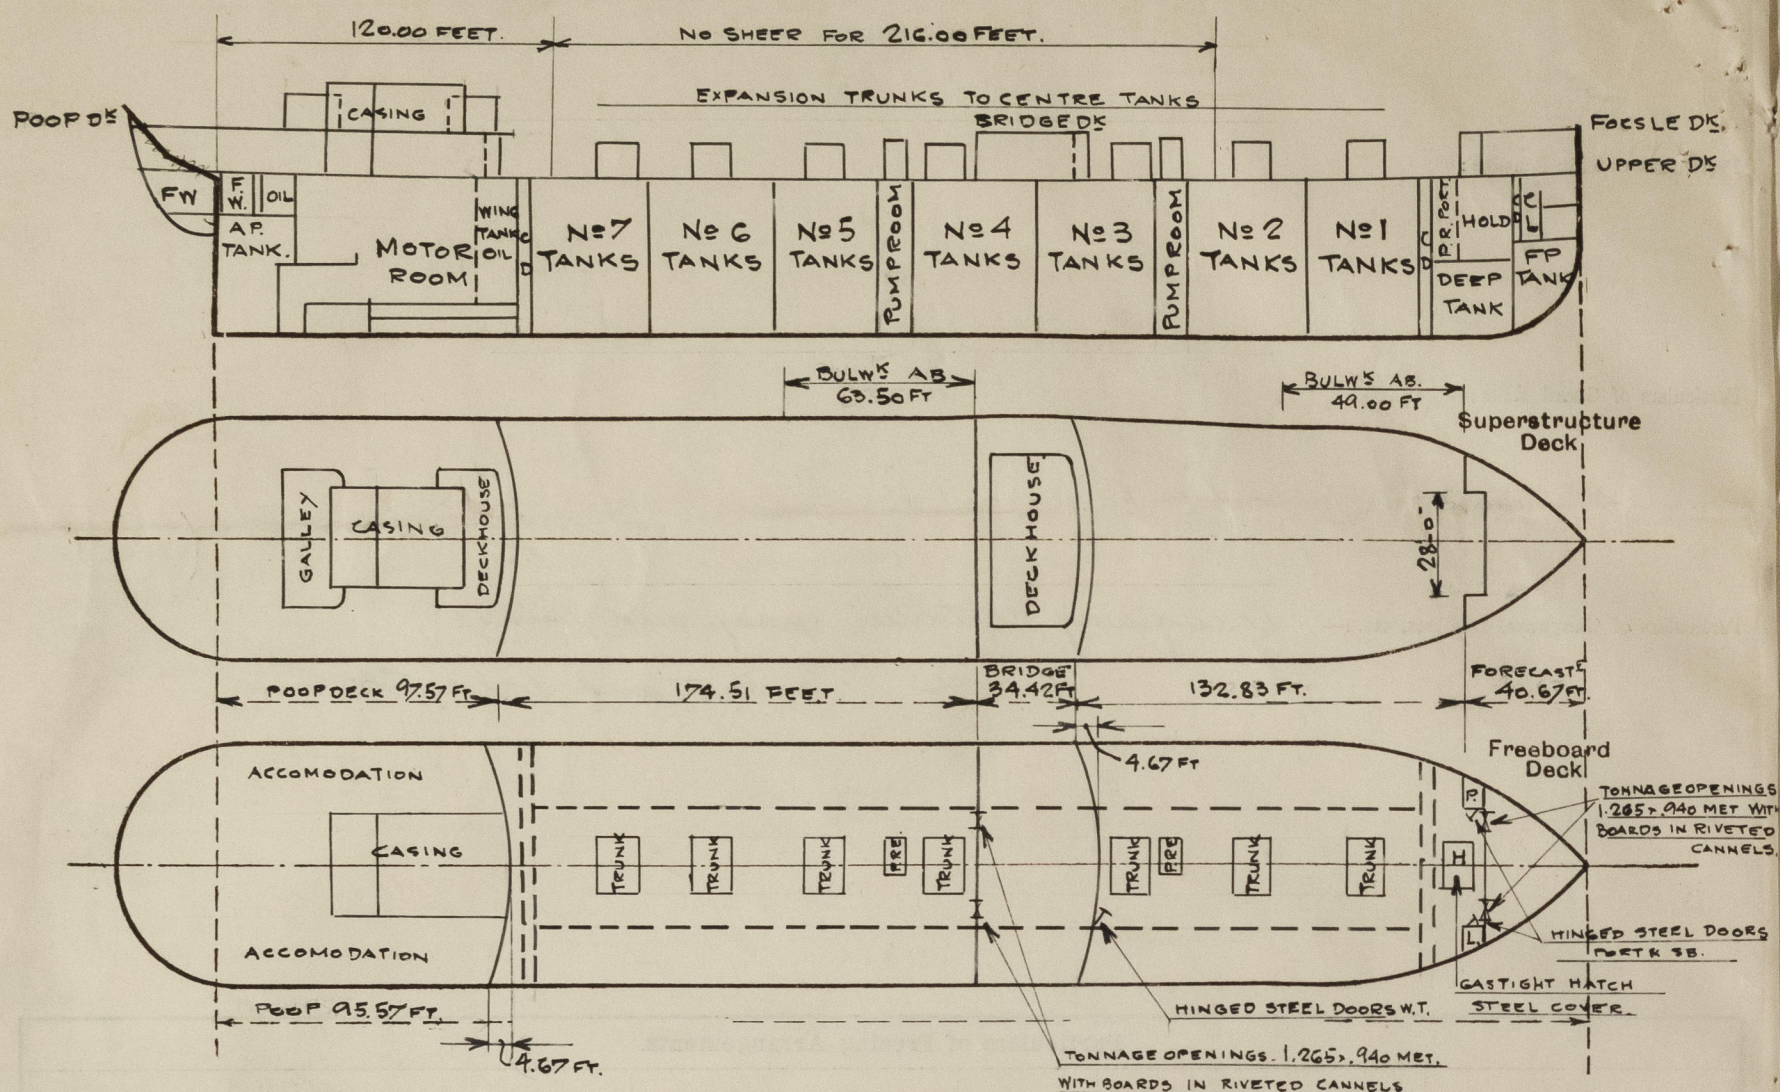 120.00 FEET.
NO SHEER FOR 216.00 FEET.
EXPANSION TRUNKS TO CENTRE TANKS
BRIDGE DK
CASING
POOP DK
FOCSLE DK.
UPPER DK
FW
F.
W.
OIL
A.P.
TANK.
MOTOR
ROOM
WING
TANK
OIL
C
D
No 7
TANKS
No 6
TANKS
No 5
TANKS
PUMPROOM
No 4
TANKS
No 3
TANKS
PUMPROOM
No 2
TANKS
No 1
TANKS
C
D
P.R. PORT.
HOLD
DEEP
TANK
C
D
C
L
FP
TANK
BULWK AB
63.50 FT
BULWK AB.
49.00 FT
Superstructure
Deck
GALLEY
CASING
DECKHOUSE
DECKHOUSE
28'-0"
POOPDECK 97.57 FT
174.51 FEET.
BRIDGE
34.42 FT
132.83 FT.
FORECASTE
40.67 FT.
4.67 FT
Freeboard
Deck
ACCOMODATION
CASING
ACCOMODATION
TRUNK
TRUNK
TRUNK
P.R.E
TRUNK
TRUNK
P.R.E
TRUNK
TRUNK
H
P.
L.
TONNAGE OPENINGS
1.265 x .940 MET WITH
BOARDS IN RIVETED
CANNELS.
HINGED STEEL DOORS
PORT & SB.
GASTIGHT HATCH
STEEL COVER.
HINGED STEEL DOORS W.T.
POOP 95.57 FT.
4.67 FT.
TONNAGE OPENINGS. 1.265 x .940 MET.
WITH BOARDS IN RIVETED CANNELS